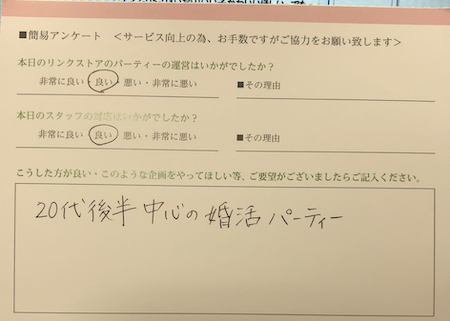 ■簡易アンケート <サービス向上の為、お手数ですがご協力をお願い致します>
本日のリンクストアのパーティーの運営はいかがでしたか?
非常に良い・良い・悪い・非常に悪い ■その理由
本日のスタッフの対応はいかがでしたか?
非常に良い・良い・悪い・非常に悪い ■その理由
こうした方が良い・このような企画をやってほしい等、ご要望がございましたらご記入ください。
20代後半中心の婚活パーティー